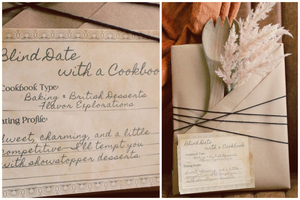 Blind Date
with a Cookboo
Cookbook Type:
Baking + British Desserts
Flavor Explorations
ating Profile:
Sweet, charming, and a little
competitive—I'll tempt you
with showstopper desserts.
Blind Date
with a Cookbook